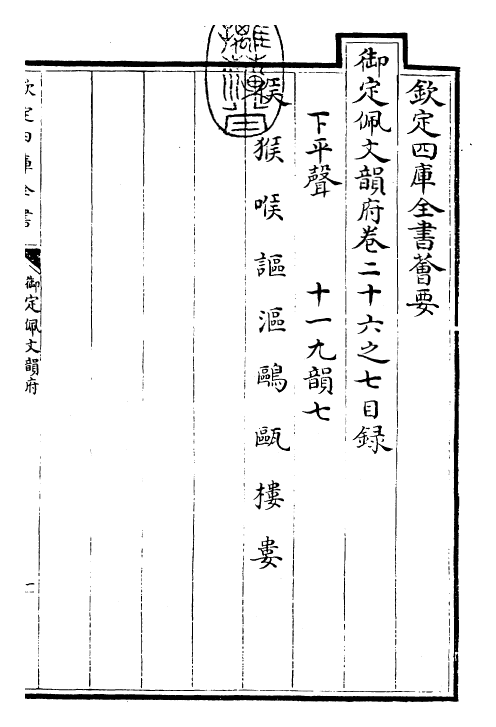 欽定四庫全書薈要
御定佩文韻府卷二十六之七目録
下平聲　十一尤韻七
猴　喉　謳　漚　鷗　甌　摟　婁
欽定四庫全書
御定佩文韻府
一